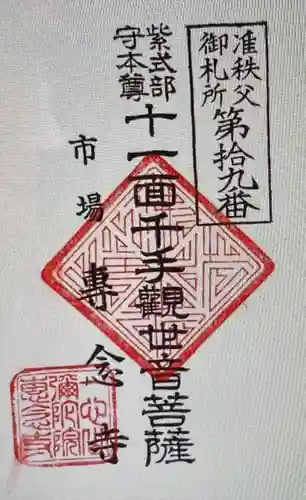 准秩父
御札所
第拾九番
紫式部
守本尊
十一面千手觀世音菩薩
市場
專念寺